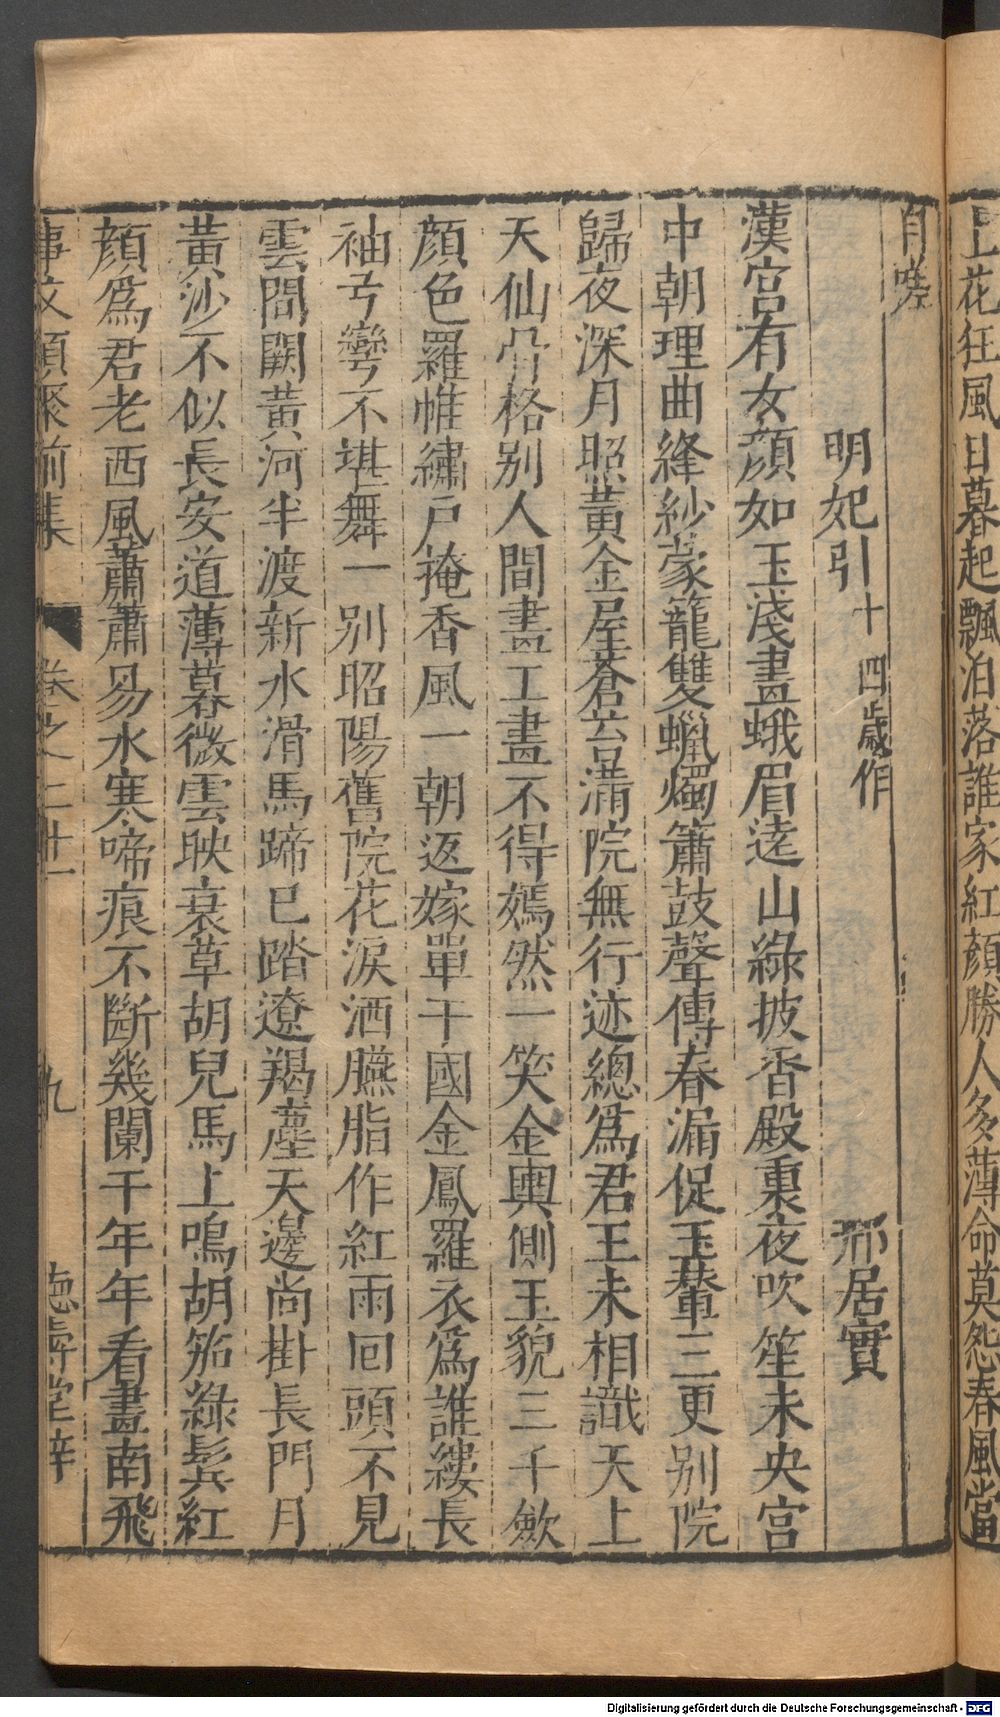 上花狂風日暮起飄泊落誰家紅顏勝人多薄命莫怨春風當
自嗟
明妃引十四歲作　邢居實
漢宮有女顏如玉淺畫蛾眉遠山綠披香殿裏夜吹笙未央宮
中朝理曲絳紗蒙籠雙蠟燭簫鼓聲傳春漏促玉輦三更别院
歸夜深月照黃金屋蒼苔滿院無行迹總爲君王未相識天上
天仙骨格别人間畫工畫不得嫣然一笑金輿側玉貌三千斂
顏色羅帷繡戸掩香風一朝返嫁單于國金鳳羅衣爲誰縷長
袖弓彎不堪舞一别昭陽舊院花淚洒臙脂作紅雨回頭不見
雲間闕黃河半渡新水滑馬蹄已踏遼羯塵天邊尚掛長門月
黃沙不似長安道薄暮微雲映衰草胡兒馬上鳴胡笳綠鬢紅
顏爲君老西風蕭蕭易水寒啼痕不斷幾闌干年年看畫南飛
事文類聚前集　卷之二十一　九　德壽堂梓
Digitalisierung gefördert durch die Deutsche Forschungsgemeinschaft - DFG